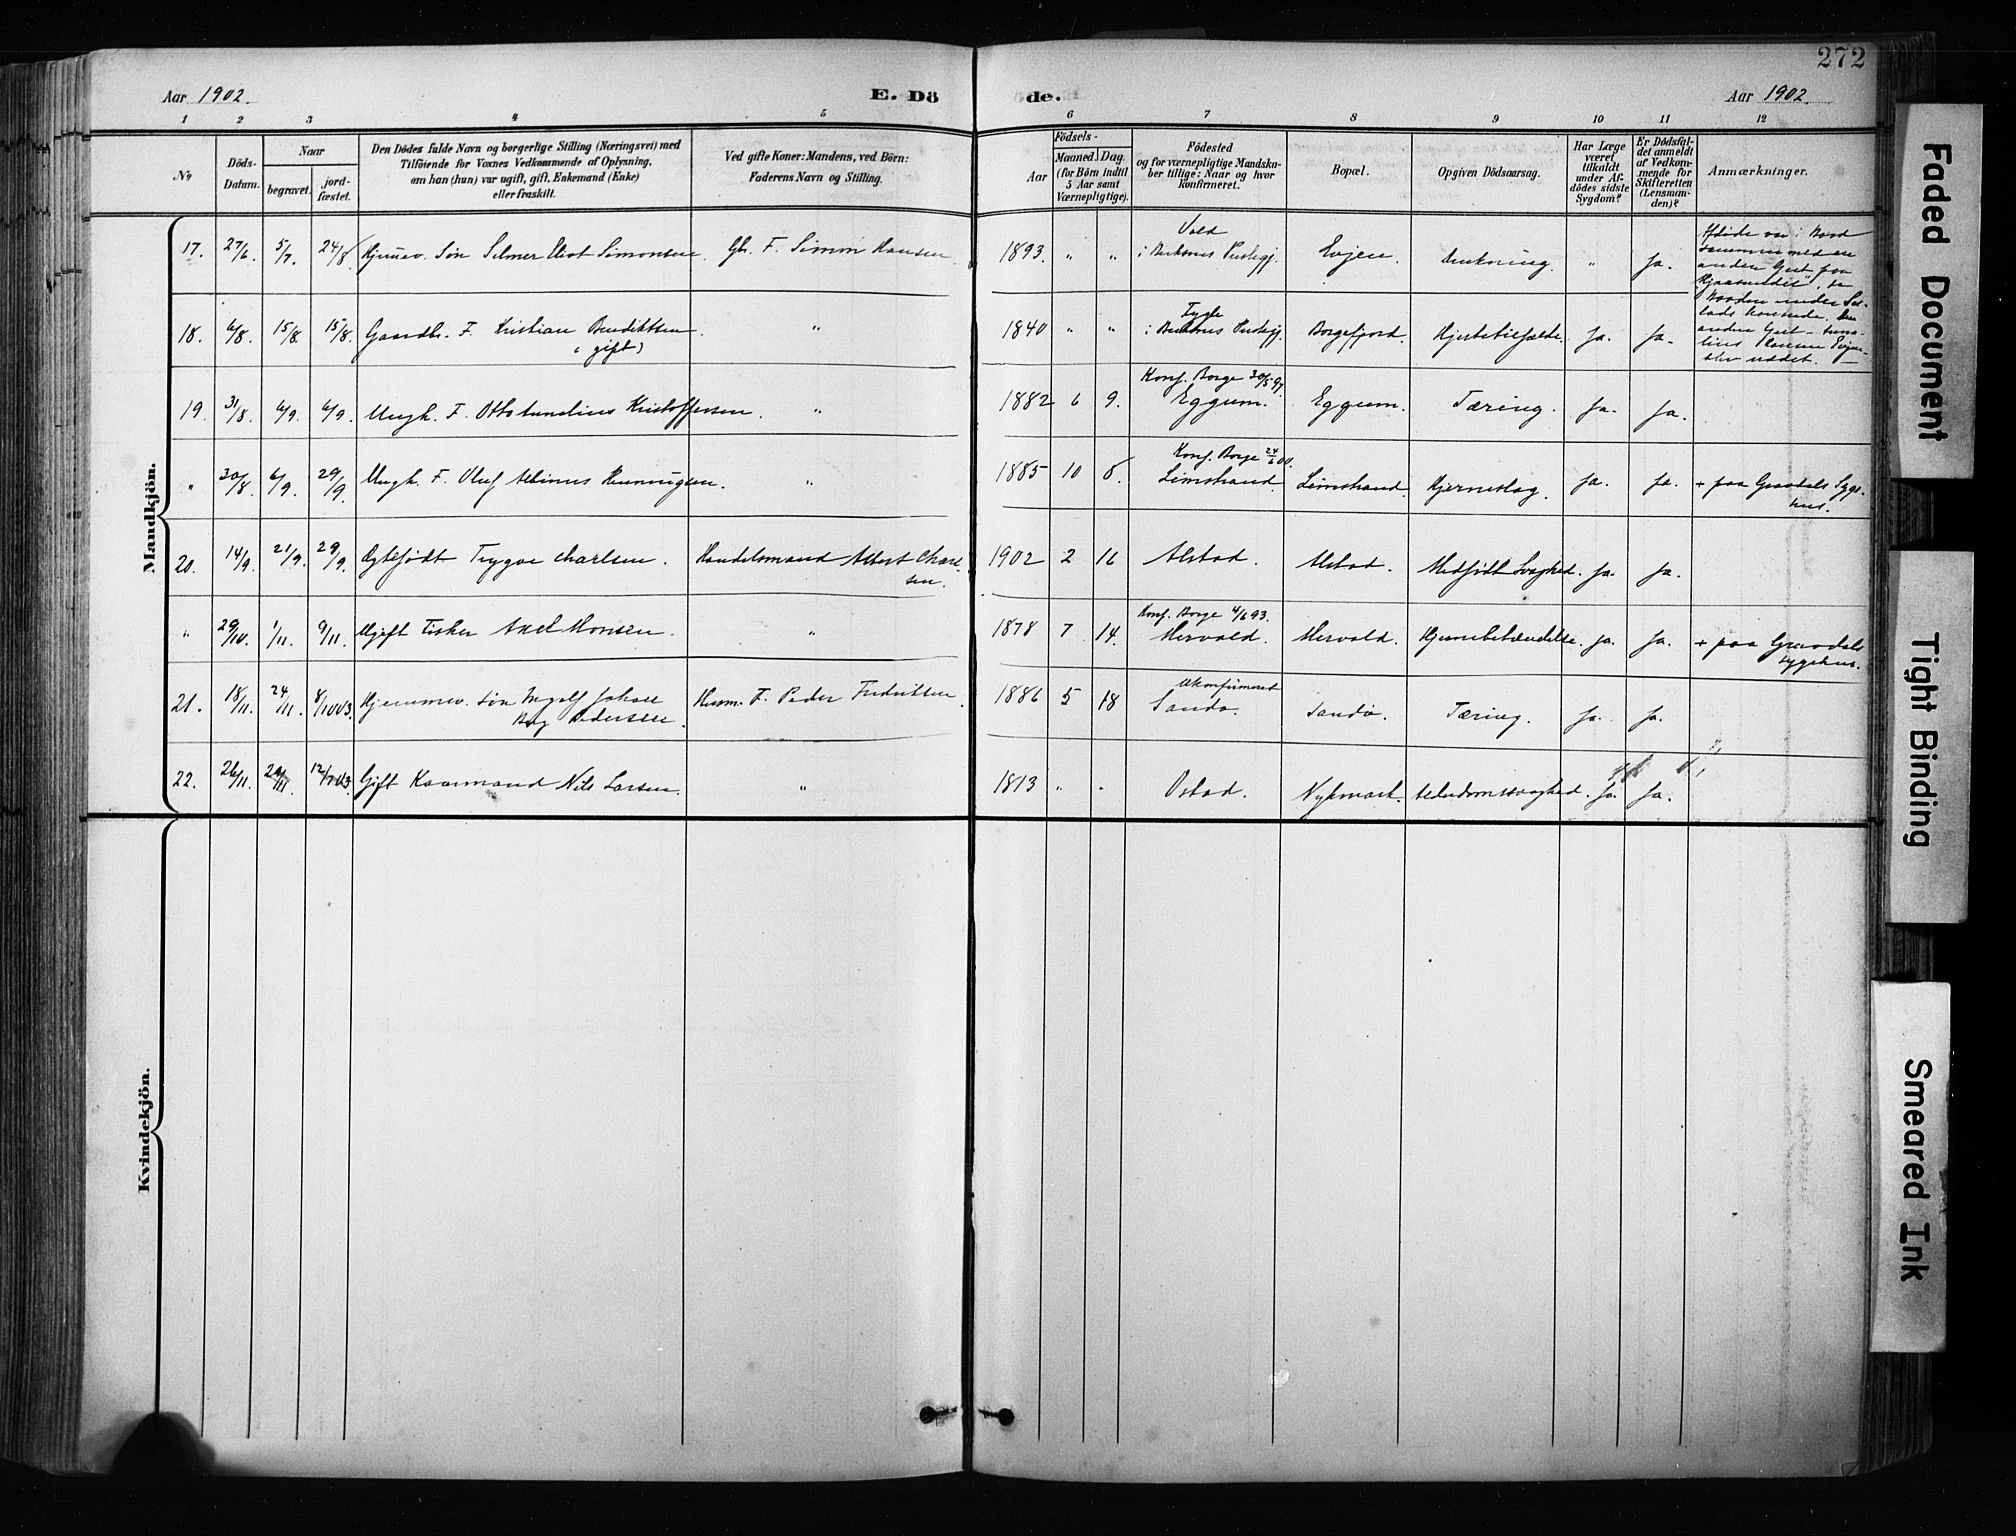 272
Aar 1902.
E. Dö
de.
Aar 1902.
1 2 3 4 5 6 7 8 9 10 11 12
No
Döds-
Datum.
Naar
begravet.
jord-
fæstet.
Den Dödes fulde Navn og borgerlige Stilling (Næringsvei) med
Tilföiende for Voxnes Vedkommende af Oplysning,
om han (hun) var ugift, gift, Enkemand (Enke)
eller fraskilt.
Ved gifte Koner: Mandens, ved Börn:
Faderens Navn og Stilling.
Födsels-
Aar
Maaned.
Dag.
(for Börn indtil
5 Aar samt
Værnepligtige).
Födested
og for værnepligtige Mandska-
ber tillige: Naar og hvor
konfirmeret.
Bopæl.
Opgiven Dödsaarsag.
Har Læge
været
tilkaldt
under Af-
dödes sidste
Sygdom?
Er Dödsfal-
det anmeldt
af Vedkom-
mende for
Skifteretten
(Lensman-
den)?
Anmærkninger.
Mandkjön.
17. 27/6 5/7. 24/8 Hjemev. Søn Selmer Simonsen. Gbr. F. Simon Hansen. 1893. " " Vold
i Buksnes Prestegj. Evjen. Drukning. " Ja.
sammen med en
anden Gut paa
18. 6/8. 15/8. 15/8. Gaardbr. F. Kristian Bendiktsen. " 1840 " " i Buksnes Prestegj. Borgefjord. Hjertetilfælde. Ja. Ja.
(gift)
19. 31/8. 6/9. 6/9. Ungk. F. Otto Kristoffersen. " 1882 6 9. Konf. Borge 30/5 97.
Eggum. Eggum. Tæring. Ja. Ja.
" 30/8. 6/9. 29/9. Ungk. F. Oluf Albinus Henningsen. " 1885 10 8. Konf. Borge 24/6 00.
Limstrand. Limstrand. Hjerneslag. Ja. Ja. + paa Gravdals Syge-
hus.
20. 14/9. 21/9. 29/9. Ægtefødt Trygve Charlsen. Handelsmand Albert Charl-
sen. 1902 2 16 Alstad. Alstad. Medfødt Svaghed. Ja. Ja.
" 29/10. 1/11. 9/11. Ugift Fisker Axel Monsen. " 1878 7 14. Konf. Borge 4/6 93.
Mervold. Mervold. Hjernebetændelse. Ja. Ja. + paa Gravdals
Sygehus.
21. 18/11. 24/11. 8/1 003. Hjemmev. Søn Ingolf Johan
Pedersen. Husm. F. Peder Fredriksen. 1886 5 18 Ukonfirmeret
Sandø. Sandø. Tæring. Ja. Ja.
22. 26/11. Gift Kaarmand Nils Larsen. " 1813 " " Ostad. Nykmark. Alderdomssvaghed. Ja. Ja.
Kvindekjön.
Faded Document
Tight Binding
Smeared Ink